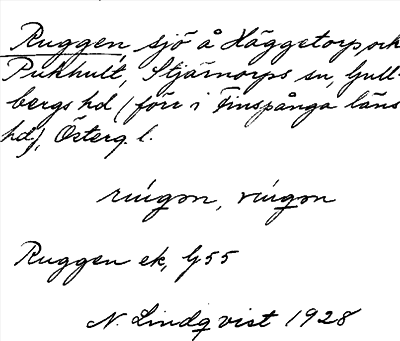 Ruggen, sjö å Häggetorps och
Pukhult, Stjärnorps sn, Gull-
bergs hd (förr i Finspånga läns
hd), Österg. l.
Ruggen ek, G55
N. Lindqvist 1928